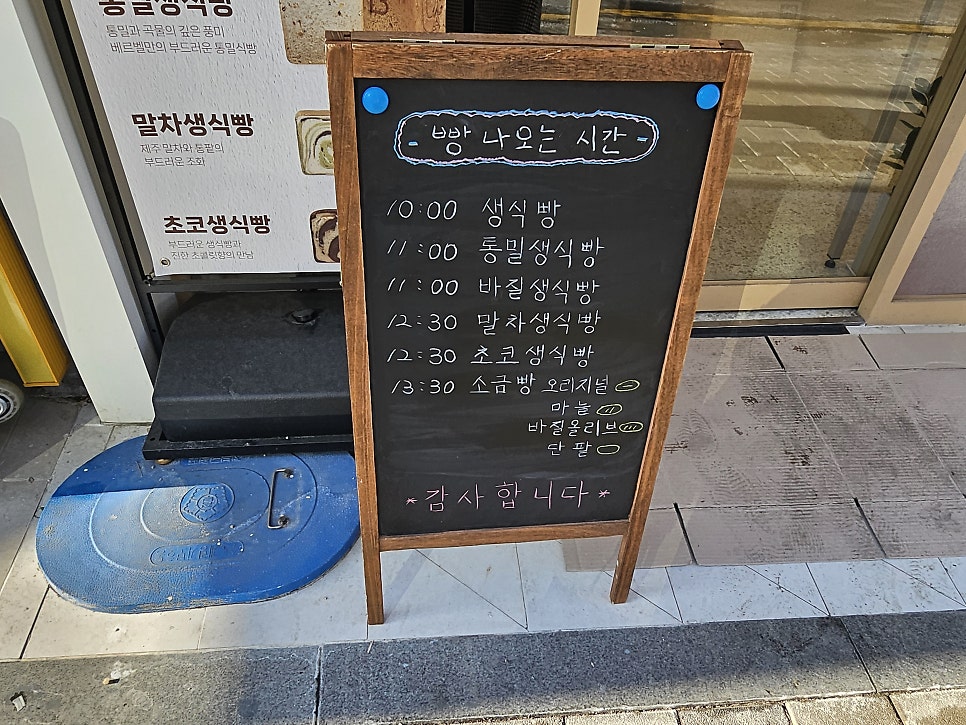 통밀생식빵
통밀과 곡물의 깊은 풍미
베르벨만의 부드러운 통밀식빵
말차생식빵
제주 말차와 통팥의
부드러운 조화
초코생식빵
부드러운 생식빵과
진한 초콜릿향의 만남
- 빵 나오는 시간 -
10:00 생식빵
11:00 통밀생식빵
11:00 바질생식빵
12:30 말차생식빵
12:30 초코생식빵
13:30 소금빵 오리지널
마늘
바질올리브
단팥
*감사합니다*